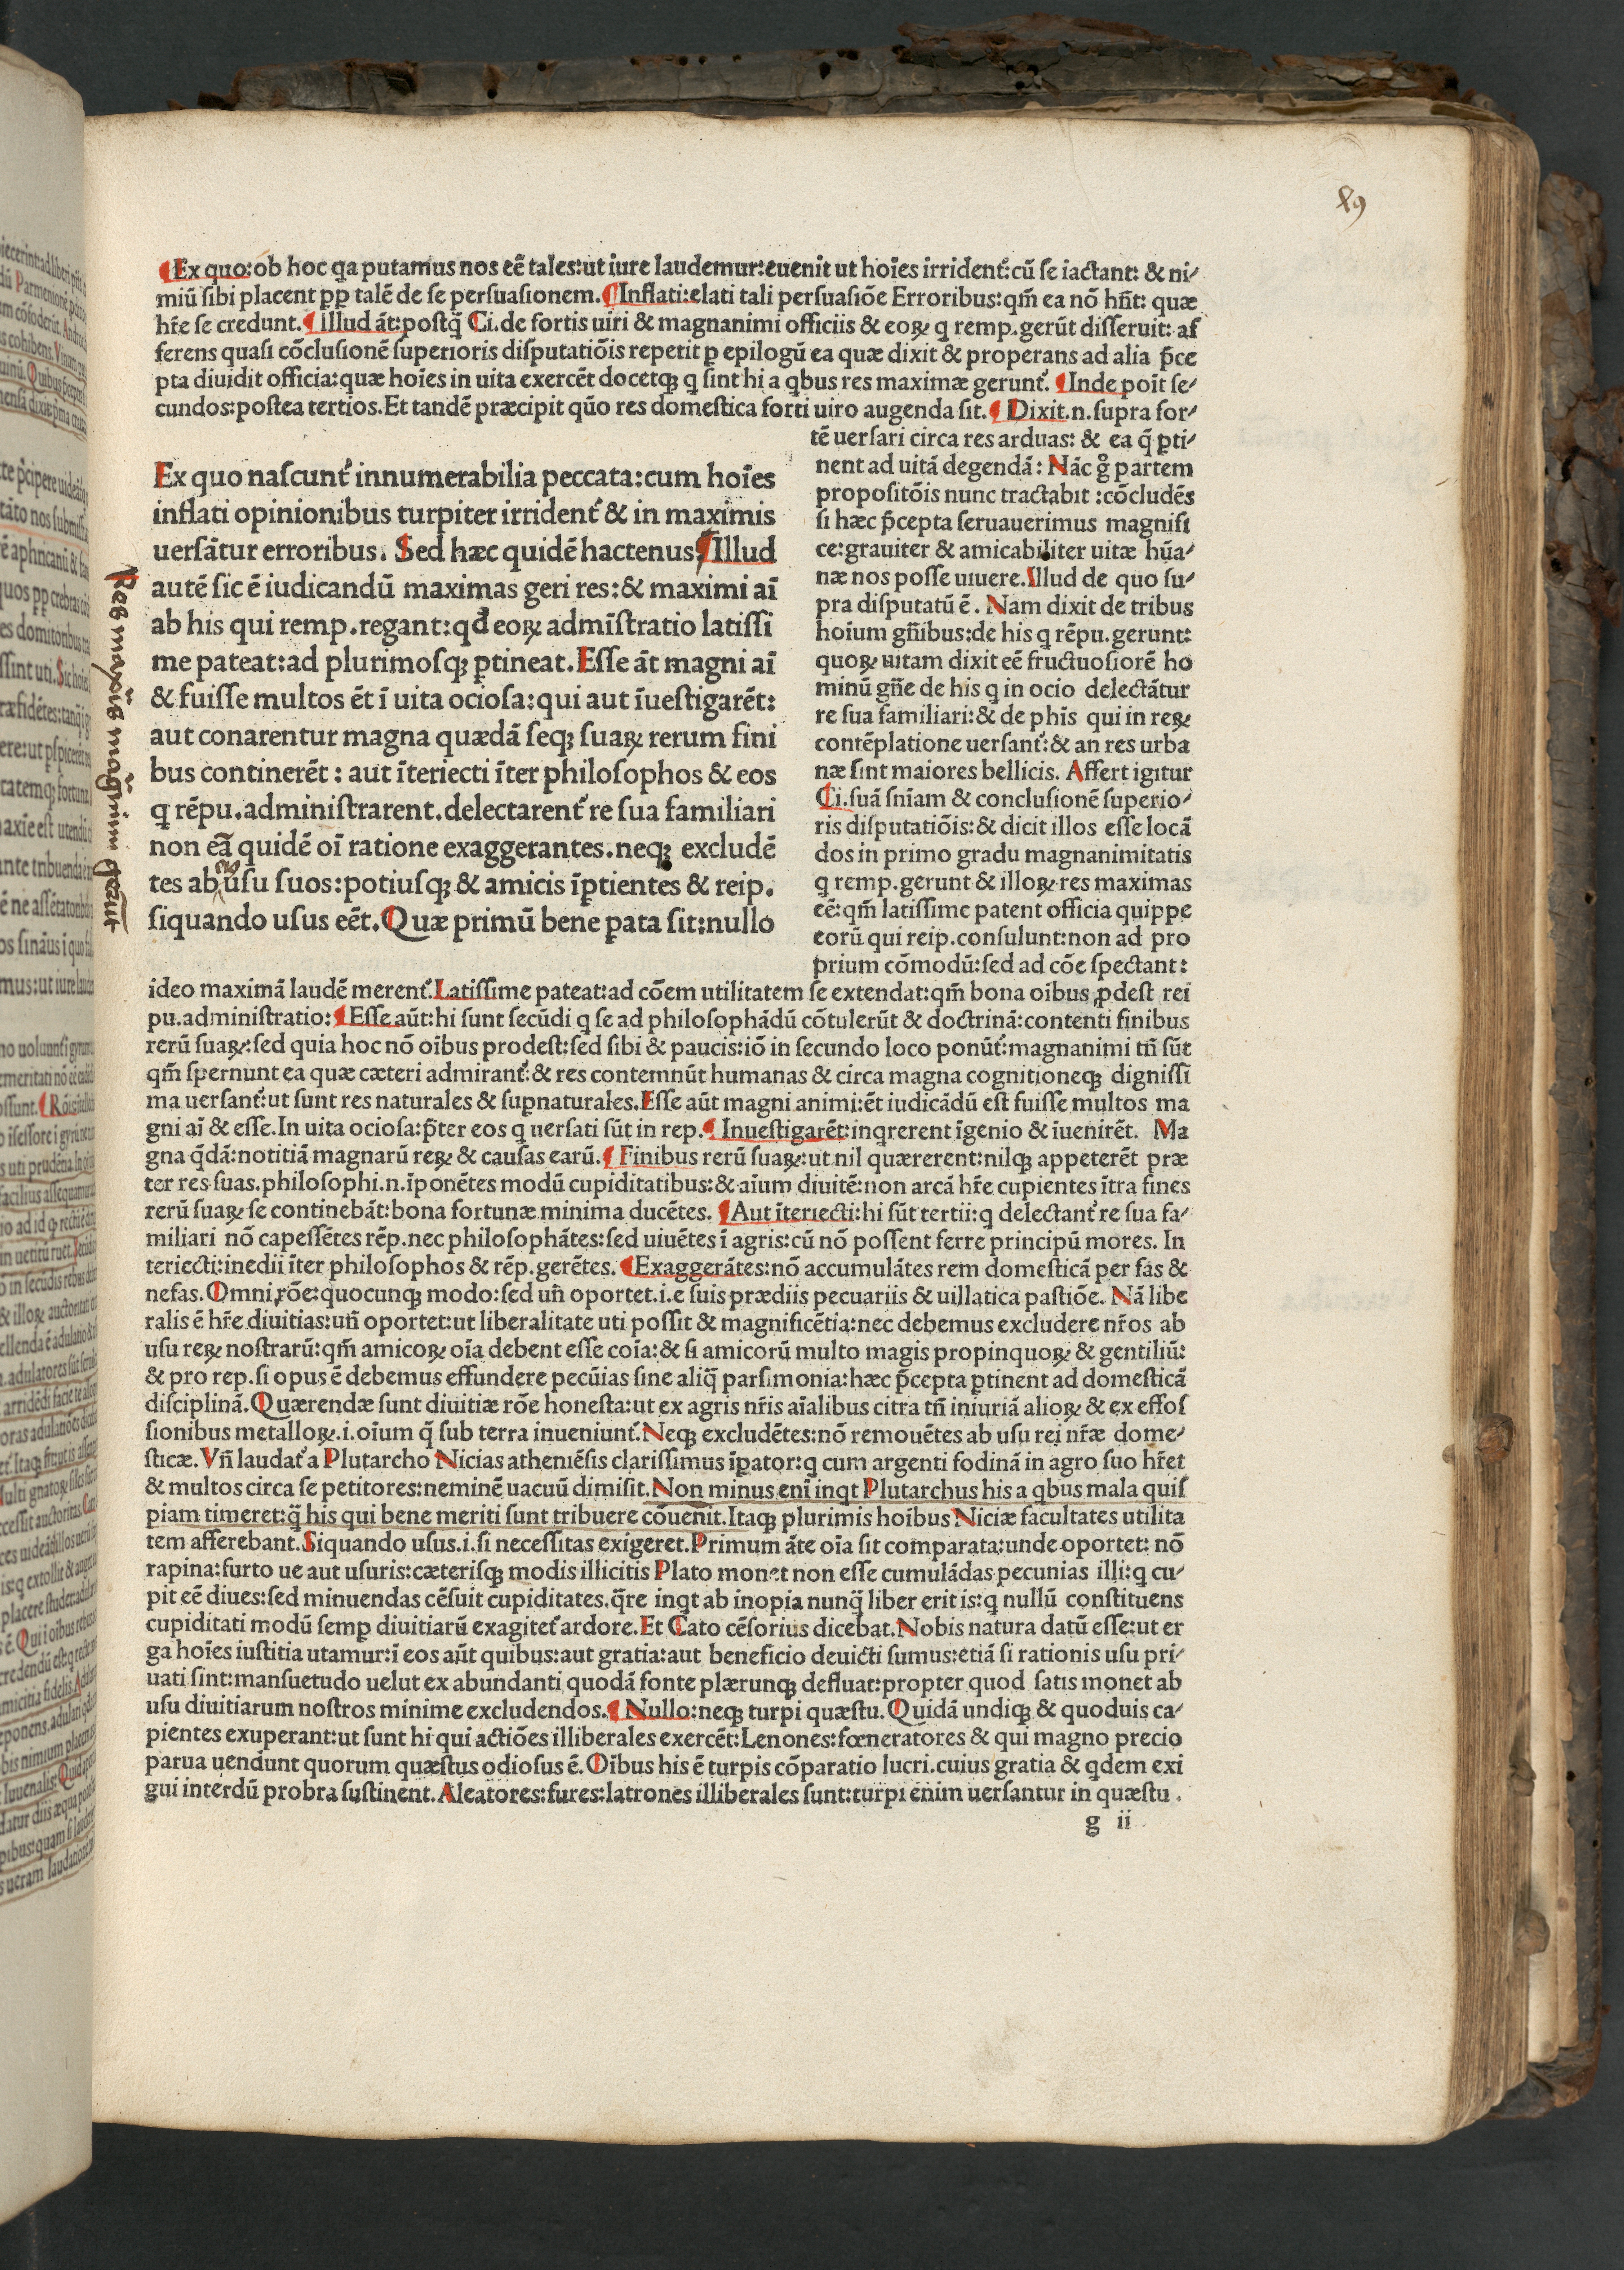 ¶Ex quo:ob hoc qa putamus nos eē tales:ut iure laudemur:euenit ut hoīes irrident᷑:cū ſe iactant: & ni⸗
miū ſibi placent ꝓp̄ talē de ſe perſuaſionem.¶Inflati:elati tali perſuaſiōe Erroribus:qm̄ ea nō hn̄t: quæ
hr̄e ſe credunt.¶illud āt:poſtq̄ Ci.de fortis uiri & magnanimi officiis & eoꝝ q remp.gerūt diſſeruit: af
ferens quaſi cōcluſionē ſuperioris diſputatiōis repetit ꝑ epilogū ea quæ dixit & properans ad alia p̄ce
pta diuidit officia:quæ hoīes in uita exercēt docetqꝫ q ſint hi a qbus res maximæ gerunt᷑. ¶Inde poīt ſe⸗
cundos:poſtea tertios.Et tandē præcipit qūo res domeſtica forti uiro augenda ſit.¶ Dixit.n.ſupra for⸗
tē uerſari circa res arduas: & ea q̄ ꝑti⸗
nent ad uitā degendā: Nāc gͦ partem
propoſitōis nunc tractabit :cōcludēs
ſi hæc p̄cepta ſeruauerimus magnifi
ce:grauiter & amicabiliter uitæ hūa⸗
næ nos poſſe uiuere.Illud de quo ſu⸗
pra diſputatū ē. Nam dixit de tribus
hoīum gn̄ibus:de his q rēpu.gerunt:
quoꝝ uitam dixit eē fructuoſiorē ho
minū gn̄e de his q in ocio delectātur
re ſua familiari:& de phīs qui in reꝝ
contēplatione uerſant᷑:& an res urba
næ ſint maiores bellicis. Affert igitur
Ci.ſuā ſnīam & concluſionē ſuperio⸗
ris diſputatiōis:& dicit illos eſſe locā
dos in primo gradu magnanimitatis
q remp.gerunt & illoꝝ res maximas
eē:qm̄ latiſſime patent officia quippe
eorū qui reip.conſulunt:non ad pro
prium cōmodū:ſed ad cōe ſpectant:
Ex quo naſcunt᷑ innumerabilia peccata:cum hoīes
inflati opinionibus turpiter irrident᷑ & in maximis
uerſātur erroribus. Sed hæc quidē hactenus.¶Illud
autē ſic ē iudicandū maximas geri res:& maximi aī
ab his qui remp.regant:qđ eoꝝ admīſtratio latiſſi
me pateat:ad plurimoſqꝫ ꝑtineat.Eſſe āt magni aī
& fuiſſe multos ēt ī uita ocioſa:qui aut īueſtigarēt:
aut conarentur magna quædā ſeqꝫ ſuaꝝ rerum fini
bus continerēt : aut īteriecti īter philoſophos & eos
q rēpu.adminiſtrarent.delectarent᷑ re ſua familiari
non eā quidē oī ratione exaggerantes.neqꝫ excludē
tes ab uſu ſuos:potiuſqꝫ & amicis īꝑtientes & reip.
ſiquando uſus eēt.Quæ primū bene ꝑata ſit:nullo
Res maxīs magnim gerūt
ideo maximā laudē merent᷑.Latiſſime pateat:ad cōem utilitatem ſe extendat:qm̄ bona oibus ꝓdeſt rei
pu.adminiſtratio:¶Eſſe aūt:hi ſunt ſecūdi q ſe ad philoſophādū cōtulerūt & doctrinā:contenti finibus
rerū ſuaꝝ:ſed quia hoc nō oībus prodeſt:ſed ſibi & paucis:iō in ſecundo loco ponūt᷑:magnanimi tn̄ ſūt
qm̄ ſpernunt ea quæ cæteri admirant᷑:& res contemnūt humanas & circa magna cognitioneqꝫ digniſſi
ma uerſant᷑:ut ſunt res naturales & ſupnaturales.Eſſe aūt magni animi:ēt iudicādū eſt fuiſſe multos ma
gni aī & eſſe.In uita ocioſa:p̄ter eos q uerſati ſūt in rep.¶ Inueſtigarēt:inqrerent īgenio & īuenirēt. Ma
gna q̄dā:notitiā magnarū reꝝ & cauſas earū.¶Finibus rerū ſuaꝝ:ut nil quærerent:nilqꝫ appeterēt præ
ter res ſuas.philoſophi.n.īponētes modū cupiditatibus:& aīum diuitē:non arcā hr̄e cupientes ītra fines
rerū ſuaꝝ ſe continebāt:bona fortunæ minima ducētes. ¶Aut īteriecti:hi ſūt tertii:q delectant᷑ re ſua fa⸗
miliari nō capeſſētes rēp.nec philoſophātes:ſed uiuētes ī agris:cū nō poſſent ferre principū mores. In
teriecti:inedii īter philoſophos & rēp.gerētes. ¶Exaggerātes:nō accumulātes rem domeſticā per fas &
nefas.Omni rōe:quocunqꝫ modo:ſed un̄ oportet.i.e ſuis prædiis pecuariis & uillatica paſtiōe. Nā libe
ralis ē hr̄e diuitias:un̄ oportet:ut liberalitate uti poſſit & magnificētia:nec debemus excludere nr̄os ab
uſu reꝝ noſtrarū:qm̄ amicoꝝ oīa debent eſſe coīa:& ſi amicorū multo magis propinquoꝝ & gentiliū:
& pro rep.ſi opus ē debemus effundere pecūias ſine aliq̄ parſimonia:hæc p̄cepta ꝑtinent ad domeſticā
diſciplinā.Quærendæ ſunt diuitiæ rōe honeſta:ut ex agris nr̄is aīalibus citra tn̄ iniuriā alioꝝ & ex effoſ
ſionibus metalloꝝ.i.oīum q̄ ſub terra inueniunt᷑.Neqꝫ excludētes:nō remouētes ab uſu rei nr̄æ dome⸗
ſticæ. Vn̄ laudat᷑ a Plutarcho Nicias atheniēſis clariſſimus īꝑator:q cum argenti fodinā in agro ſuo hr̄et
& multos circa ſe petitores:neminē uacuū dimiſit.Non minus enī inqt Plutarchus his a qbus mala quiſ
piam timeret:q̄ his qui bene meriti ſunt tribuere cōuenit.Itaqꝫ plurimis hoībus Niciæ facultates utilita
tem afferebant.Siquando uſus.i.ſi neceſſitas exigeret.Primum āte oīa ſit comparata:unde oportet: nō
rapina:furto ue aut uſuris:cæteriſqꝫ modis illicitis Plato monet non eſſe cumulādas pecunias illi:q cu⸗
pit eē diues:ſed minuendas cēſuit cupiditates.q̄re inqt ab inopia nunq̄ liber erit is:q nullū conſtituens
cupiditati modū ſemꝑ diuitiarū exagitet᷑ ardore.Et Cato cēſorius dicebat.Nobis natura datū eſſe:ut er
ga hoīes iuſtitia utamur:ī eos aūt quibus:aut gratia:aut beneficio deuicti ſumus:etiā ſi rationis uſu pri⸗
uati ſint:manſuetudo uelut ex abundanti quodā fonte plærunqꝫ defluat:propter quod ſatis monet ab
uſu diuitiarum noſtros minime excludendos.¶Nullo:neqꝫ turpi quæſtu.Quidā undiqꝫ & quoduis ca⸗
pientes exuperant:ut ſunt hi qui actiōes illiberales exercēt:Lenones:fœneratores & qui magno precio
parua uendunt quorum quæſtus odioſus ē.Oībus his ē turpis cōparatio lucri.cuius gratia & qdem exi
gui interdū probra ſuſtinent.Aleatores:fures:latrones illiberales ſunt:turpi enim uerſantur in quæſtu.
g ii